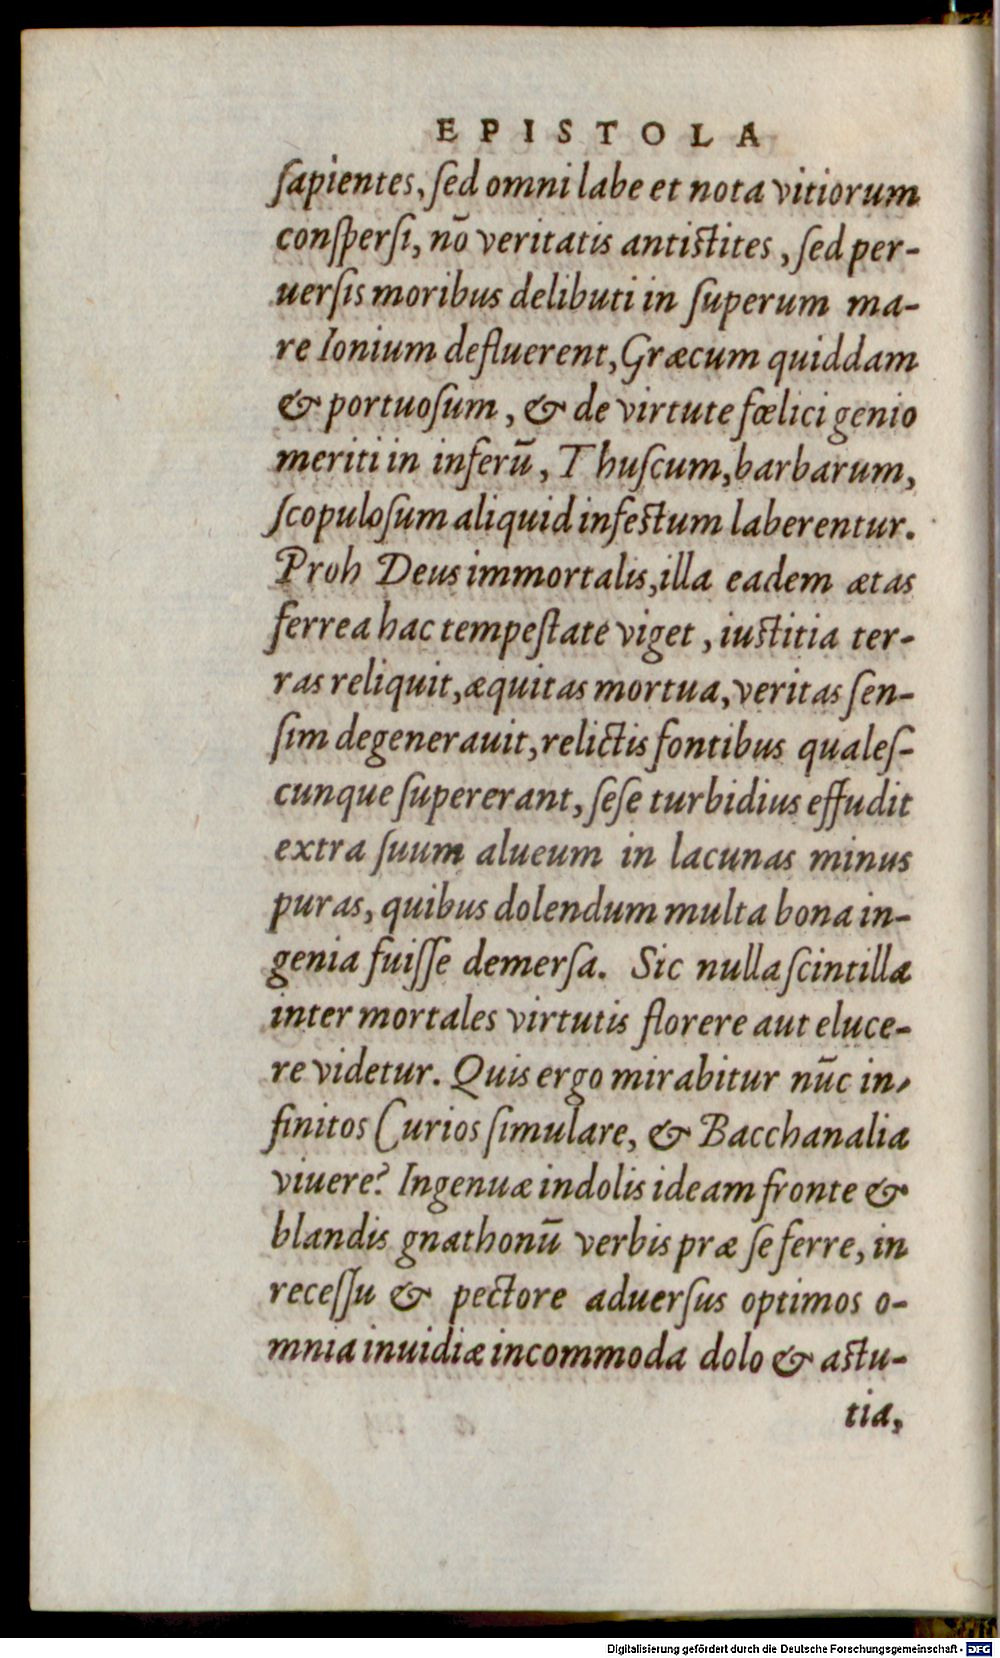 EPISTOLA
ſapientes, ſed omni labe et nota vitiorum
conſperſi, nō veritatis antiſtites, ſed per-
uerſis moribus delibuti in ſuperum ma-
re Ionium defluerent, Græcum quiddam
& portuoſum, & de virtute fœlici genio
meriti in inferū, Thuſcum, barbarum,
ſcopuloſum aliquid infeſtum laberentur.
Proh Deus immortalis, illa eadem ætas
ferrea hac tempeſtate viget, iuſtitia ter-
ras reliquit, æquitas mortua, veritas ſen-
ſim degenerauit, relictis fontibus qualeſ-
cunque ſupererant, ſeſe turbidius effudit
extra ſuum alueum in lacunas minus
puras, quibus dolendum multa bona in-
genia fuiſſe demerſa. Sic nulla ſcintilla
inter mortales virtutis florere aut eluce-
re videtur. Quis ergo mirabitur nūc in-
finitos Curios ſimulare, & Bacchanalia
viuere? Ingenuæ indolis ideam fronte &
blandis gnathonū verbis præ ſe ferre, in
receſſu & pectore aduerſus optimos o-
mnia inuidiæ incommoda dolo & aſtu-
tia,
Digitalisierung gefördert durch die Deutsche Forschungsgemeinschaft - DFG